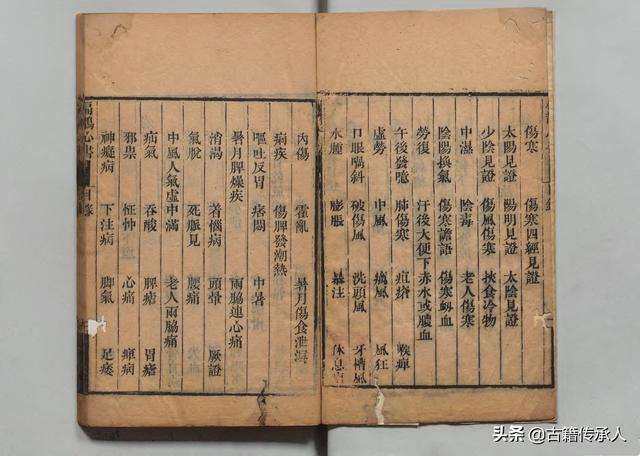 傷寒 傷寒四經見證
太陽見證 陽明見證 太陰見證
少陰見證 傷風傷寒 挾食冷物
中濕 陰毒 老人傷寒
陰陽換氣 傷寒譫語 傷寒衂血
勞復 汗後大便下赤水或膿血
午後發噫 肺傷寒 疽瘡 喉痺
虛勞 中風 癘風 風狂
口眼喎斜 破傷風 洗頭風 牙槽風
水腫 膨脹 暴注 休息
內傷 霍亂 暑月傷食泄瀉
痢疾 傷脾發潮熱
嘔吐反胃 痞悶 中暑
暑月脾燥疾 兩脇連心痛
消渴 着惱病 頭暈 厥證
氣脫 死脈見 腰痛
中風人氣虛中滿 老人兩脇痛
疝氣 吞酸 脾瘧 胃瘧
邪祟 怔忡 心痛 痺病
神癡病 下注病 脚氣 足痿
扁鵲心書 目錄
头条 @古籍传承人